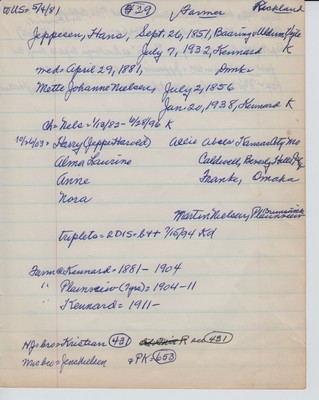 to US = 5/4/81 #39 Farmer Richland
Jeppesen, Hans, Sept. 26, 1851, Baaring
July 7, 1932, Kennard K
wed = April 29, 1881, Dmk
Mette Johanne Nielsen, July 2, 1856
Jan. 20, 1938, Kennard K
Ch = Nels - 4/13/82 - 4/28/96 K
Harry (Jeppe Harold) Allie Kansas City Mo
Alma Laurine Caldwell, Beverly Hills
Anne Franke, Omaha
Nora
Martin Nielsen, Plainview
triplets = 2 D1S = b + + 7/15/94 Kd
Farm @ Kennard = 1881 - 1904
" Plainview (Tyre) = 1904 - 11
" Kennard = 1911 -
Hjs bro = Kristian 431 R 431
Ms bro = Jens Nielsen = PK = 653